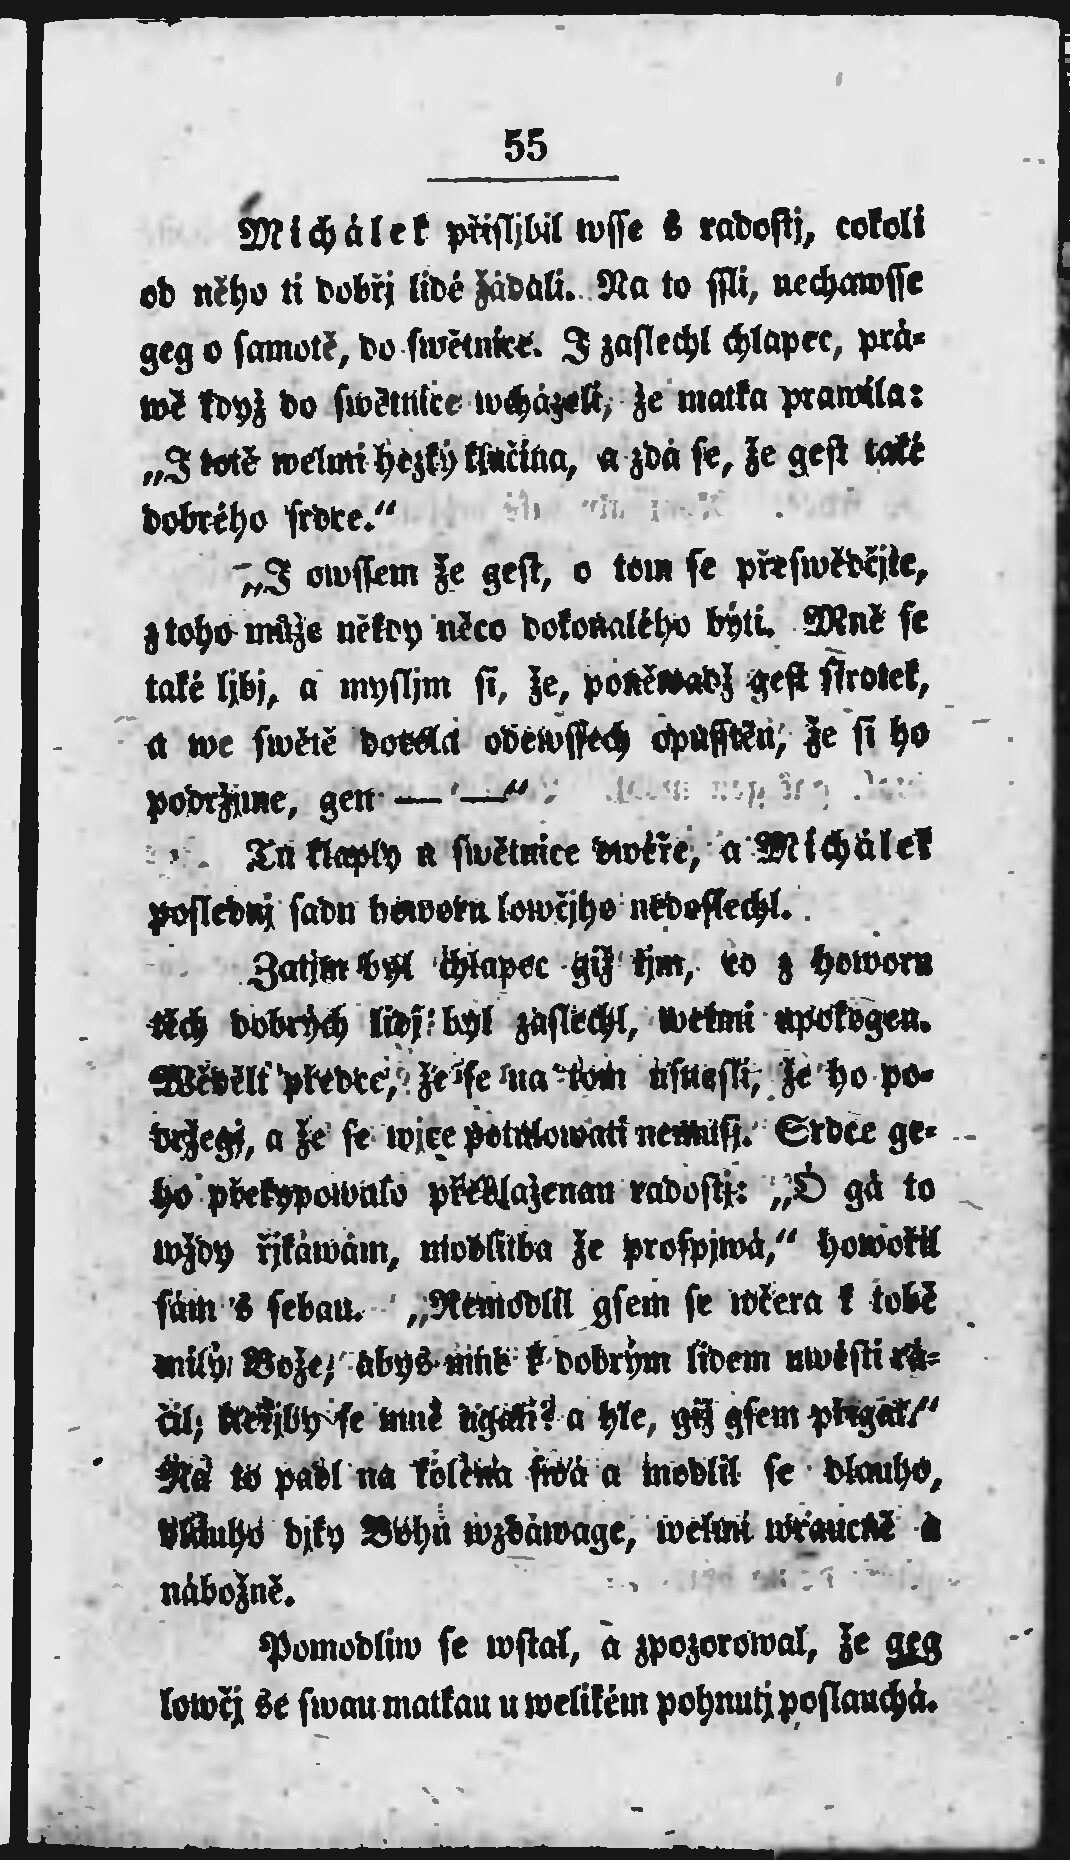 55
Michálek přisljbil wsse s radostj, cokoli
od něho ti dobřj lidé žádali. Na to ssli, nechawsse
geg o samotě, do swětnice. I zaslechl chlapec, prá-
wě když do swětnice wcházeli, že matka prawila:
„I totě welmi hezký klučina, a zdá se, že gest také
dobrého srdce.“
„I owssem že gest, o tom se přeswědčjte,
z toho může někdy něco dokonalého býti. Mně se
také ljbj, a mysljm si, že, poněwadž gest sirotek,
a we swětě docela odewssech opusstěn, že si ho
podržjme, gen — —“
Tu klaply u swětnice dwéře, a Michálek
poslednj sadu howoru lowčjho nedoslechl.
Zatjm byl chlapec giž tjm, co z howoru
těch dobrých lidj byl zaslechl, welmi upokogen.
Wěděli předce, že se na tom usnesli, že ho po-
držegj, a že se wjce potulowati nemusj. Srdce ge-
ho překypowalo přeblaženau radostj: „O gá to
wždy řjkáwám, modlitba že prospjwá,“ howořil
sám s sebau. „Nemodlil gsem se wčera k tobě
milý Bože, abys mne k dobrým lidem uwésti rá-
čil, kteřjby se mně ugali? a hle, giž gsem přigat.“
Na to padl na kolena swá a modlil se dlauho,
dlauho djky Bohu wzdáwage, welmi wraucně a
nábožně.
Pomodliw se wstal, a zpozorowal, že geg
lowčj se swau matkau u welikém pohnutj poslauchá.